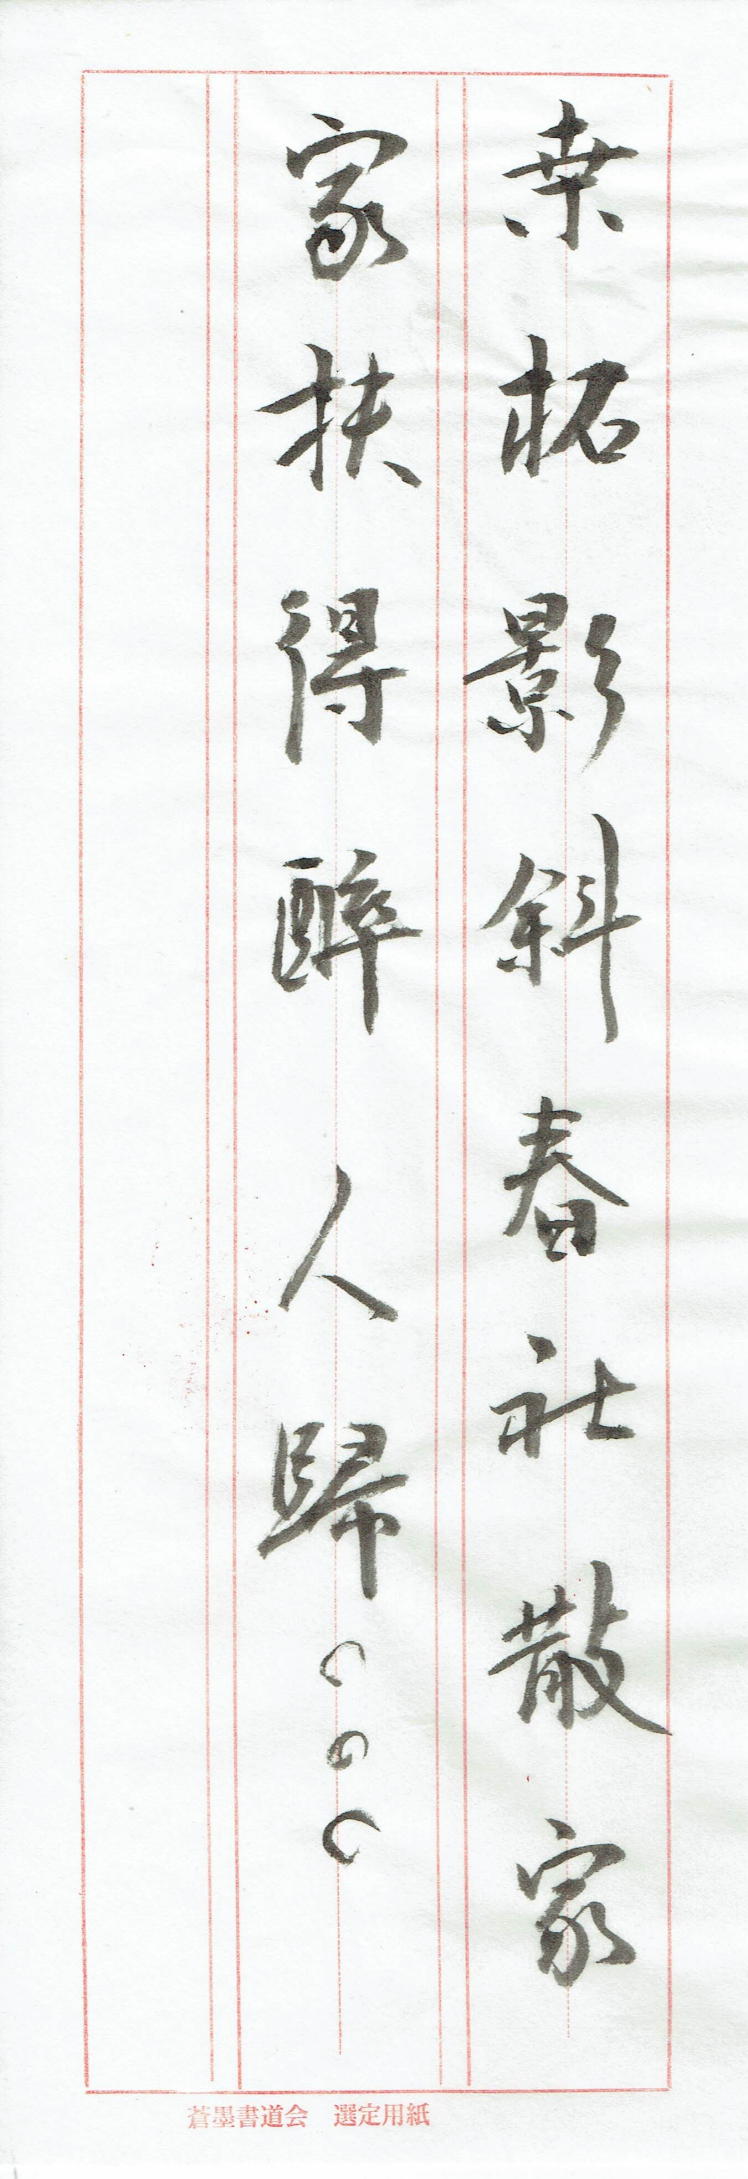 桒柘影斜春社散家
家扶得醉人歸
蒼墨書道会 選定用紙